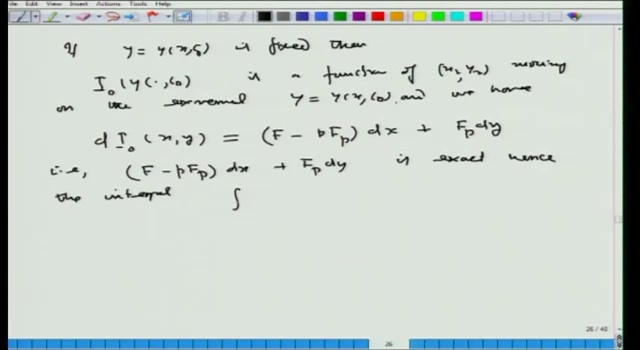 File Edit View Insert Actions Tools Help
If y = y(x,c₀) is fixed then
I₀(y(·,c₀) is a function of (x₂,y₂) moving
on the extremal y = y(x,c₀) and we have
d I₀(x,y) = (F - pF_p) dx + F_p dy
i.e, (F - pF_p) dx + F_p dy is exact hence
the integral ∫
26 / 40
26